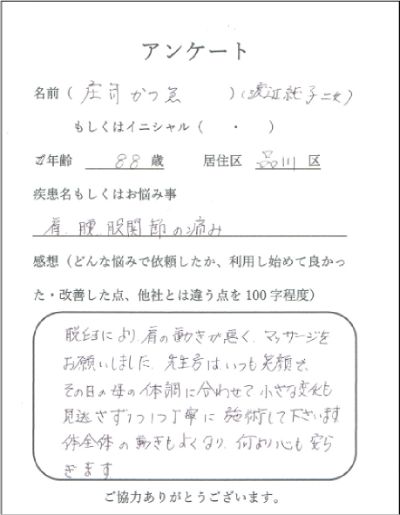 アンケート
名前（庄司かつゑ）（渡辺純子二女）
もしくはイニシャル（　・　）
ご年齢　88歳　居住区　品川区
疾患名もしくはお悩み事
肩、腰、股関節の痛み
感想（どんな悩みで依頼したか、利用し始めて良かっ
た・改善した点、他社とは違う点を100字程度）
脱臼により、肩の動きが悪く、マッサージを
お願いしました。先生方はいつも笑顔で、
その日の母の体調に合わせて小さな変化も
見逃さず1つ1つ丁寧に施術して下さいます
体全体の動きもよくなり、何より心も安ら
ぎます
ご協力ありがとうございます。